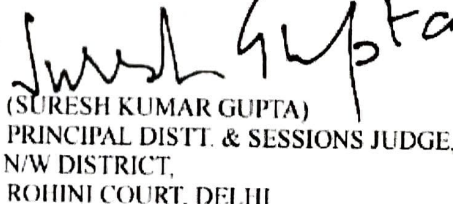 Suresh Gupta
(SURESH KUMAR GUPTA)
PRINCIPAL DISTT. & SESSIONS JUDGE,
N/W DISTRICT,
ROHINI COURT, DELHI